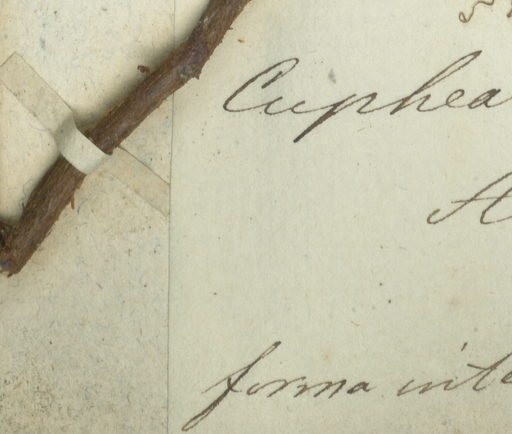 Cuphea
forma inte